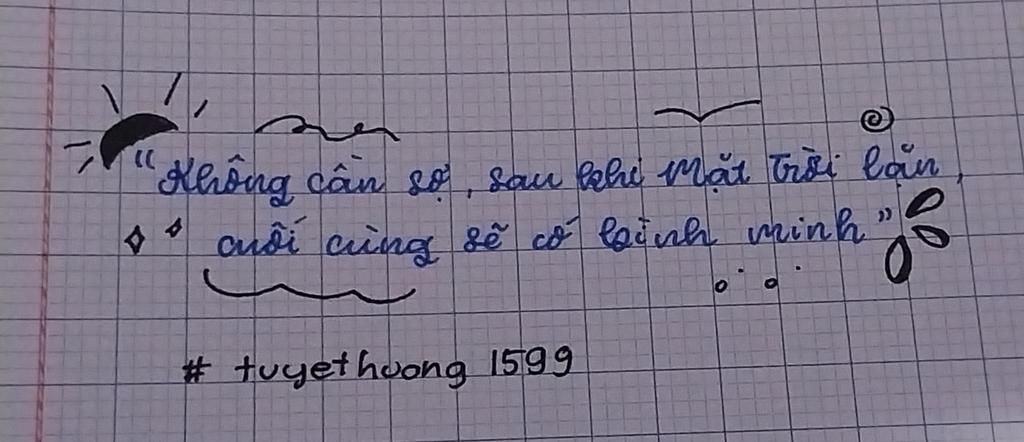 "Không cần sợ, sau khi Mặt Trời lặn,
cuối cùng sẽ có bình minh"
# tuyethuong 1599